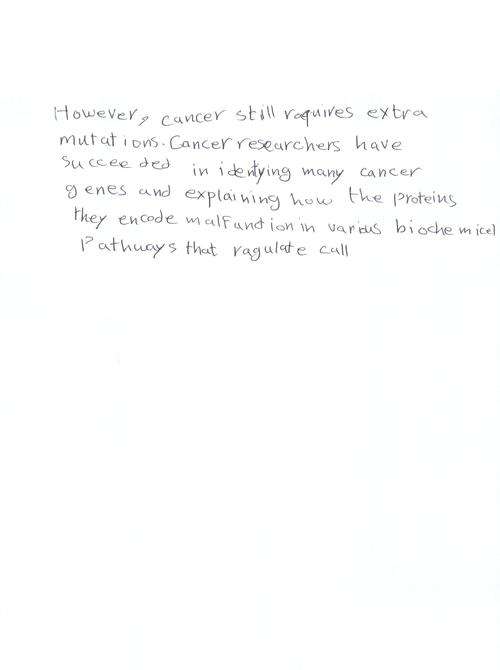 However, cancer still requires extra
mutations. Cancer researchers have
succeeded in identying many cancer
genes and explaining how the proteins
they encode malfunction in various biochemicel
Pathways that ragulate call